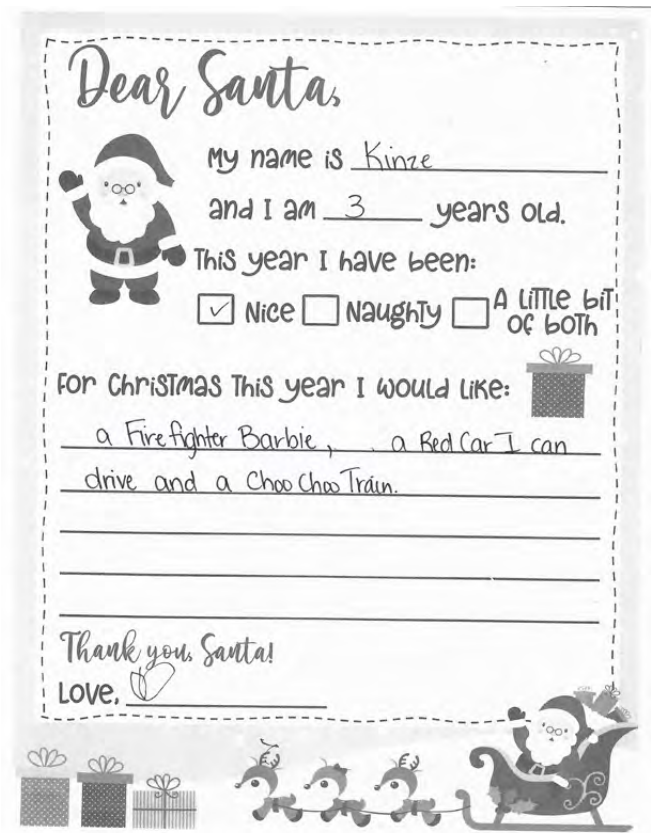 Dear Santa,
My name is Kinze
and I am 3 years old.
This year I have been:
✓ Nice Naughty A little bit of both
For Christmas this year I would like:
a Firefighter Barbie, a Red Car I can
drive and a Choo Choo Train.
Thank you, Santa!
Love,